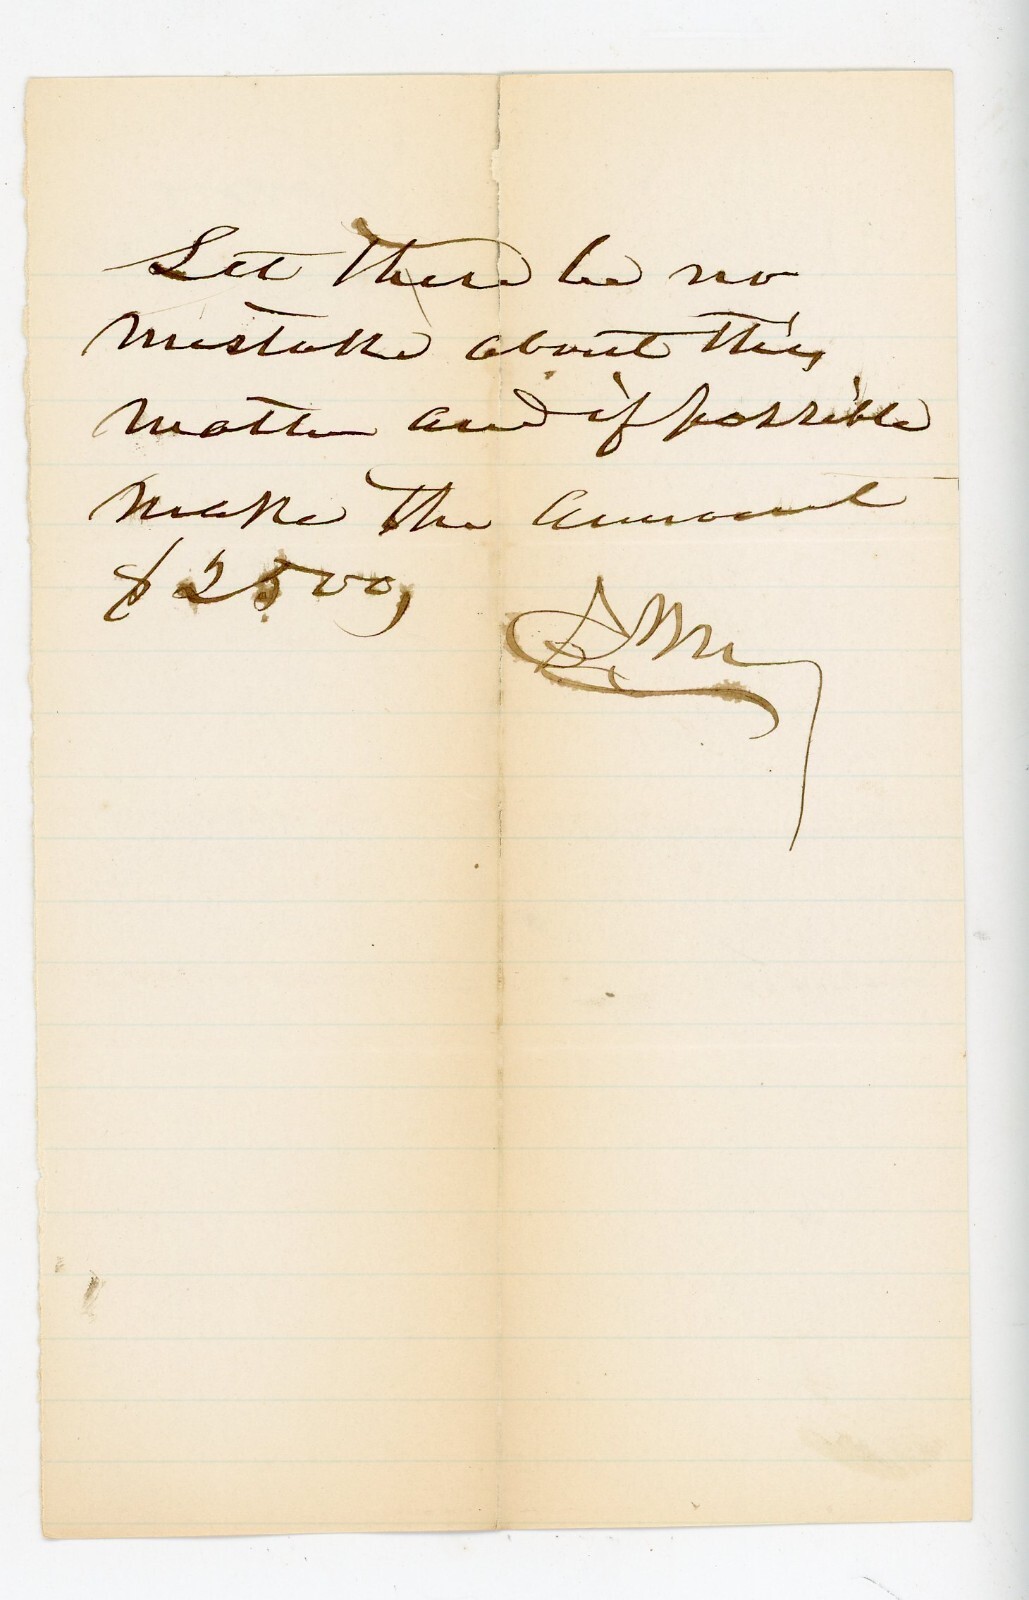 Let there be no
mistake about this
matter and if possible
make the amount
$2500,